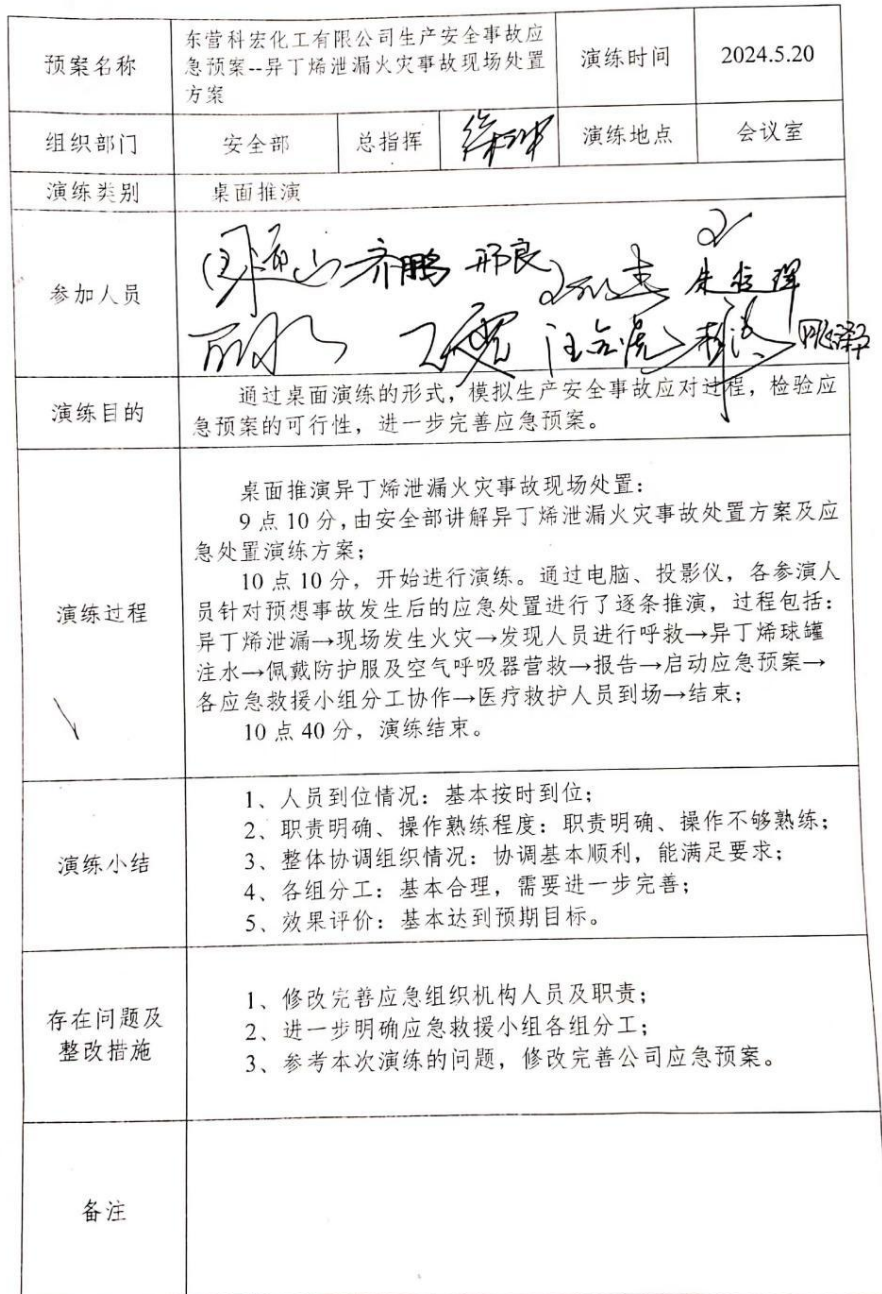 预案名称
东营科宏化工有限公司生产安全事故应
急预案--异丁烯泄漏火灾事故现场处置
方案
演练时间
2024.5.20
组织部门
安全部
总指挥
演练地点
会议室
演练类别
桌面推演
参加人员
齐鹏 邢良
演练目的
通过桌面演练的形式，模拟生产安全事故应对过程，检验应
急预案的可行性，进一步完善应急预案。
演练过程
桌面推演异丁烯泄漏火灾事故现场处置：
9点10分，由安全部讲解异丁烯泄漏火灾事故处置方案及应
急处置演练方案；
10点10分，开始进行演练。通过电脑、投影仪，各参演人
员针对预想事故发生后的应急处置进行了逐条推演，过程包括：
异丁烯泄漏→现场发生火灾→发现人员进行呼救→异丁烯球罐
注水→佩戴防护服及空气呼吸器营救→报告→启动应急预案→
各应急救援小组分工协作→医疗救护人员到场→结束；
10点40分，演练结束。
演练小结
1、人员到位情况：基本按时到位；
2、职责明确、操作熟练程度：职责明确、操作不够熟练；
3、整体协调组织情况：协调基本顺利，能满足要求；
4、各组分工：基本合理，需要进一步完善；
5、效果评价：基本达到预期目标。
存在问题及
整改措施
1、修改完善应急组织机构人员及职责；
2、进一步明确应急救援小组各组分工；
3、参考本次演练的问题，修改完善公司应急预案。
备注